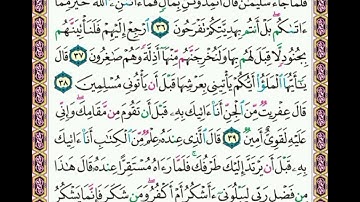 فَلَمَّا جَآءَ سُلَيْمَٰنَ قَالَ أَتُمِدُّونَنِ بِمَالٍ فَمَآ ءَاتَىٰنِۦَ ٱللَّهُ خَيْرٌ مِّمَّآ
ءَاتَىٰكُم بَلْ أَنتُم بِهَدِيَّتِكُمْ تَفْرَحُونَ ٣٦ ٱرْجِعْ إِلَيْهِمْ فَلَنَأْتِيَنَّهُم
بِجُنُودٍ لَّا قِبَلَ لَهُم بِهَا وَلَنُخْرِجَنَّهُم مِّنْهَآ أَذِلَّةً وَهُمْ صَٰغِرُونَ ٣٧ قَالَ
يَٰٓأَيُّهَا ٱلْمَلَؤُا۟ أَيُّكُمْ يَأْتِينِى بِعَرْشِهَا قَبْلَ أَن يَأْتُونِى مُسْلِمِينَ ٣٨
قَالَ عِفْرِيتٌ مِّنَ ٱلْجِنِّ أَنَا۠ ءَاتِيكَ بِهِۦ قَبْلَ أَن تَقُومَ مِن مَّقَامِكَ ۖ وَإِنِّى
عَلَيْهِ لَقَوِىٌّ أَمِينٌ ٣٩ قَالَ ٱلَّذِى عِندَهُۥ عِلْمٌ مِّنَ ٱلْكِتَٰبِ أَنَا۠ ءَاتِيكَ
بِهِۦ قَبْلَ أَن يَرْتَدَّ إِلَيْكَ طَرْفُكَ ۚ فَلَمَّا رَءَاهُ مُسْتَقِرًّا عِندَهُۥ قَالَ هَٰذَا
مِن فَضْلِ رَبِّى لِيَبْلُوَنِىٓ ءَأَشْكُرُ أَمْ أَكْفُرُ ۖ وَمَن شَكَرَ فَإِنَّمَا يَشْكُرُ